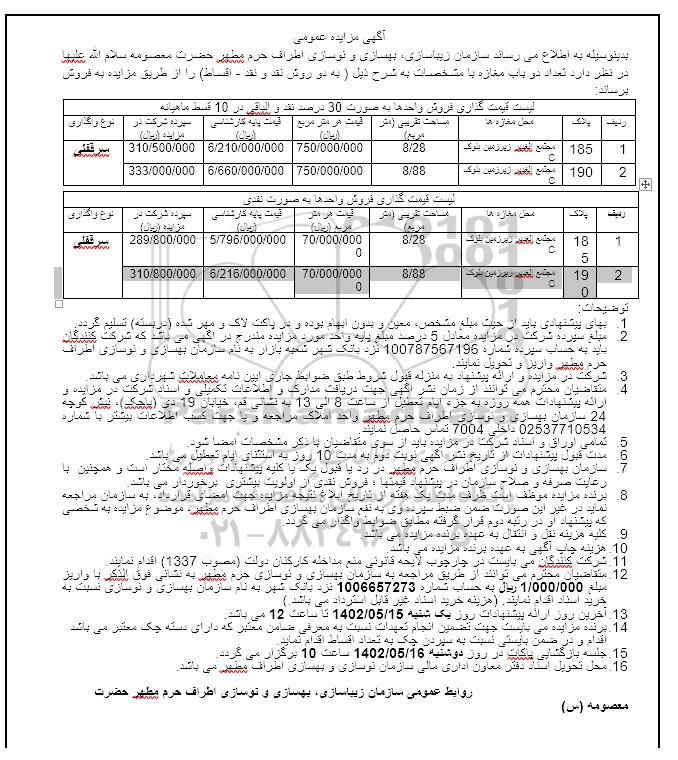 آگهی مزایده عمومی
بدینوسیله به اطلاع می رساند سازمان زیباسازی، بهسازی و نوسازی اطراف حرم مطهر حضرت معصومه سلام الله علیها
در نظر دارد تعداد دو باب مغازه با مشخصات به شرح ذیل ( به دو روش نقد و نقد - اقساط) را از طریق مزایده به فروش
برساند:
لیست قیمت گذاری فروش واحدها به صورت 30 درصد نقد و الباقی در 10 قسط ماهیانه
ردیف پلاک محل مغازه ها مساحت تقریبی (متر مربع) قیمت هر متر مربع (ریال) قیمت پایه کارشناسی (ریال) سپرده شرکت در مزایده (ریال) نوع واگذاری
1 185 مجتمع الغدیر زیرزمین بلوک C 8/28 750/000/000 6/210/000/000 310/500/000 سرقفلی
2 190 مجتمع الغدیر زیرزمین بلوک C 8/88 750/000/000 6/660/000/000 333/000/000
لیست قیمت گذاری فروش واحدها به صورت نقدی
ردیف پلاک محل مغازه ها مساحت تقریبی (متر مربع) قیمت هر متر مربع (ریال) قیمت پایه کارشناسی (ریال) سپرده شرکت در مزایده (ریال) نوع واگذاری
1 185 مجتمع الغدیر زیرزمین بلوک C 8/28 70/000/0000 5/796/000/000 289/800/000 سرقفلی
2 190 مجتمع الغدیر زیرزمین بلوک C 8/88 70/000/0000 6/216/000/000 310/800/000
توضیحات:
1. بهای پیشنهادی باید از حیث مبلغ مشخص، معین و بدون ابهام بوده و در پاکت لاک و مهر شده (دربسته) تسلیم گردد.
2. مبلغ سپرده شرکت در مزایده معادل 5 درصد مبلغ پایه واحد مورد مزایده مندرج در آگهی می باشد که شرکت کنندگان
باید به حساب سپرده شماره 100787567196 نزد بانک شهر شعبه بازار به نام سازمان بهسازی و نوسازی اطراف
حرم مطهر واریز و تحویل نمایند.
3. شرکت در مزایده و ارائه پیشنهاد به منزله قبول شروط طبق ضوابط جاری آیین نامه معاملات شهرداری می باشد.
4. متقاضیان محترم می توانند از زمان نشر آگهی جهت دریافت مدارک و اطلاعات تکمیلی و اسناد شرکت در مزایده و
ارائه پیشنهادات همه روزه به جزء ایام تعطیل از ساعت 8 الی 13 به نشانی قم، خیابان 19 دی (باجک)، نبش کوچه
24 سازمان بهسازی و نوسازی اطراف حرم مطهر واحد املاک مراجعه و یا جهت کسب اطلاعات بیشتر با شماره
02537710534 داخلی 7004 تماس حاصل نمایند.
5. تمامی اوراق و اسناد شرکت در مزایده باید از سوی متقاضیان با ذکر مشخصات امضا شود.
6. مدت قبول پیشنهادات از تاریخ نشر آگهی نوبت دوم به مدت 10 روز به استثنای ایام تعطیل می باشد.
7. سازمان بهسازی و نوسازی اطراف حرم مطهر در رد یا قبول یک یا کلیه پیشنهادات واصله مختار است و همچنین با
رعایت صرفه و صلاح سازمان در پیشنهاد قیمتها ؛ فروش نقدی از اولویت بیشتری برخوردار می باشد.
8. برنده مزایده موظف است ظرف مدت یک هفته از تاریخ ابلاغ نتیجه مزایده جهت امضای قرارداد، به سازمان مراجعه
نماید در غیر این صورت ضمن ضبط سپرده وی به نفع سازمان بهسازی اطراف حرم مطهر، موضوع مزایده به شخصی
که پیشنهاد او در رتبه دوم قرار گرفته مطابق ضوابط واگذار می گردد.
9. کلیه هزینه نقل و انتقال به عهده برنده مزایده می باشد.
10. هزینه چاپ آگهی به عهده برنده مزایده می باشد.
11. شرکت کنندگان می بایست در چارچوب لایحه قانونی منع مداخله کارکنان دولت (مصوب 1337) اقدام نمایند.
12. متقاضیان محترم می توانند از طریق مراجعه به سازمان بهسازی و نوسازی حرم مطهر به نشانی فوق الذکر با واریز
مبلغ 1/000/000 ریال به حساب شماره 1006657273 نزد بانک شهر به نام سازمان بهسازی و نوسازی نسبت به
خرید اسناد اقدام نمایند. (هزینه خرید اسناد غیر قابل استرداد می باشد.)
13. آخرین روز ارائه پیشنهادات روز یک شنبه 1402/05/15 تا ساعت 12 می باشد.
14. برنده مزایده می بایست جهت تضمین انجام تعهدات نسبت به معرفی ضامن معتبر که دارای دسته چک معتبر می باشد
اقدام و در ضمن بایستی نسبت به سپردن چک به تعداد اقساط اقدام نماید.
15. جلسه بازگشایی پاکات در روز دوشنبه 1402/05/16 ساعت 10 برگزار می گردد.
16. محل تحویل اسناد دفتر معاون اداری مالی سازمان نوسازی و بهسازی اطراف مطهر می باشد.
روابط عمومی سازمان زیباسازی، بهسازی و نوسازی اطراف حرم مطهر حضرت
معصومه (س)